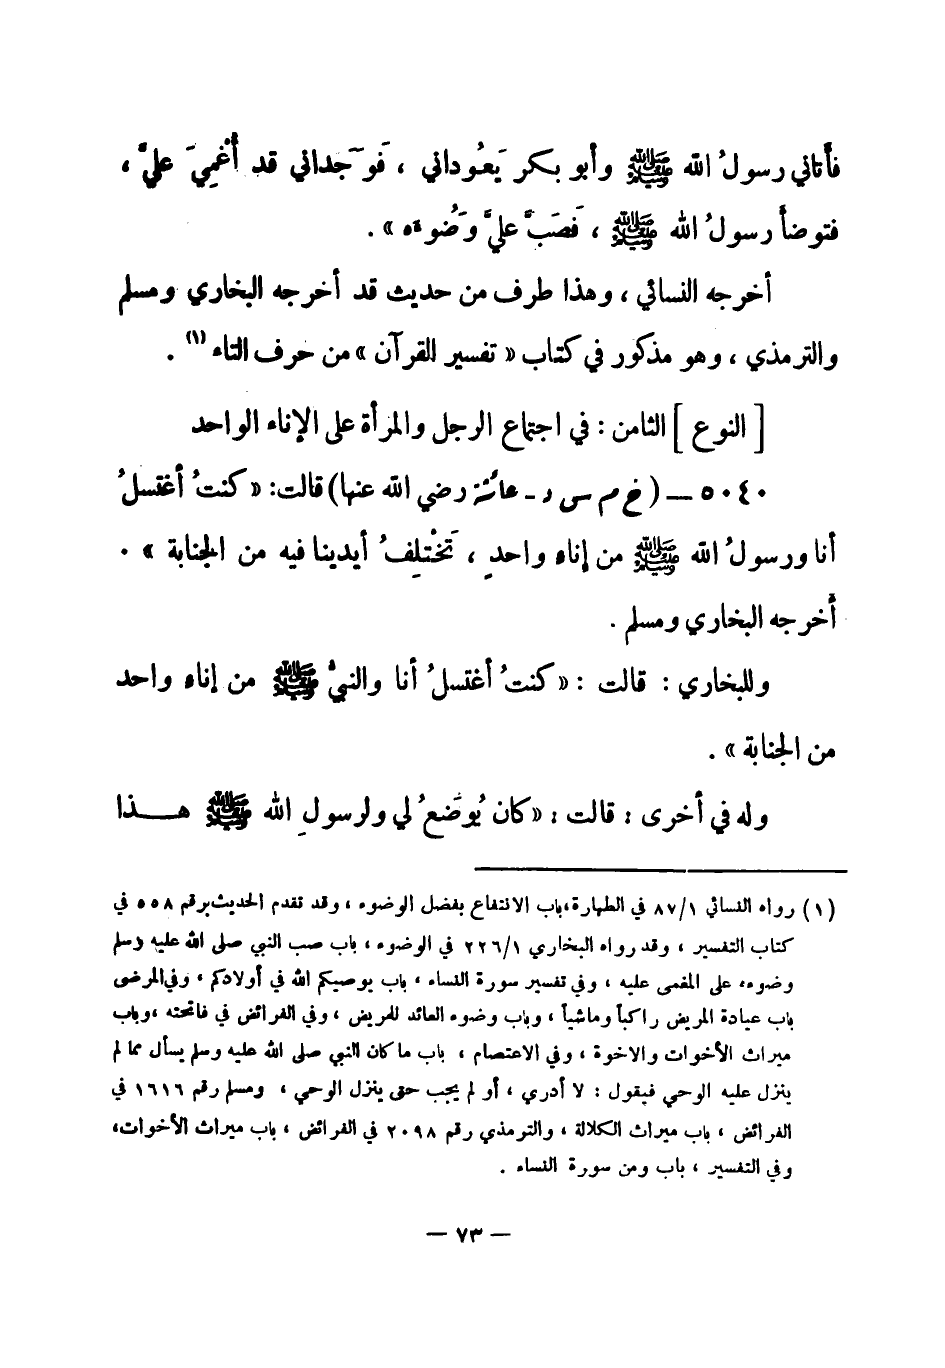 فأتاني رسولُ الله ﷺ وأبو بكر يَعُوداني ، فَوَجَداني قد أُغْمِيَ عليَّ ،
فتوضأ رسولُ الله ﷺ ، فَصَبَّ عليَّ وَضُوءه » .
أخرجه النسائي ، وهذا طرف من حديث قد أخرجه البخاري ومسلم
والترمذي ، وهو مذكور في كتاب « تفسير القرآن » من حرف التاء (١) .
[ النوع ] الثامن : في اجتماع الرجل والمرأة على الإناء الواحد
٥٠٤٠ — ( خ م س د - عائشة رضي الله عنها ) قالت : « كنتُ أغتسلُ
أنا ورسولُ الله ﷺ من إناء واحدٍ ، تَخْتَلِفُ أيدينا فيه من الجنابة » .
أخرجه البخاري ومسلم .
وللبخاري : قالت : « كنتُ أغتسلُ أنا والنبيُّ ﷺ من إناء واحد
من الجنابة » .
وله في أخرى : قالت : « كان يُوضَعُ لي ولرسولِ الله ﷺ هـذا
(١) رواه النسائي ٨٧/١ في الطهارة ، باب الانتفاع بفضل الوضوء ، وقد تقدم الحديث برقم ٥٥٨ في
كتاب التفسير ، وقد رواه البخاري ٢٢٦/١ في الوضوء ، باب صب النبي صلى الله عليه وسلم
وضوءه على المغمى عليه ، وفي تفسير سورة النساء ، باب يوصيكم الله في أولادكم ، وفي المرضى
باب عيادة المريض راكباً وماشياً ، وباب وضوء العائد للمريض ، وفي الفرائض في فاتحته ، وباب
ميراث الأخوات والاخوة ، وفي الاعتصام ، باب ما كان النبي صلى الله عليه وسلم يسأل مما لم
ينزل عليه الوحي فيقول : لا أدري ، أو لم يجب حتى ينزل الوحي ، ومسلم رقم ١٦١٦ في
الفرائض ، باب ميراث الكلالة ، والترمذي رقم ٢٠٩٨ في الفرائض ، باب ميراث الأخوات ،
وفي التفسير ، باب ومن سورة النساء .
— ٧٣ —